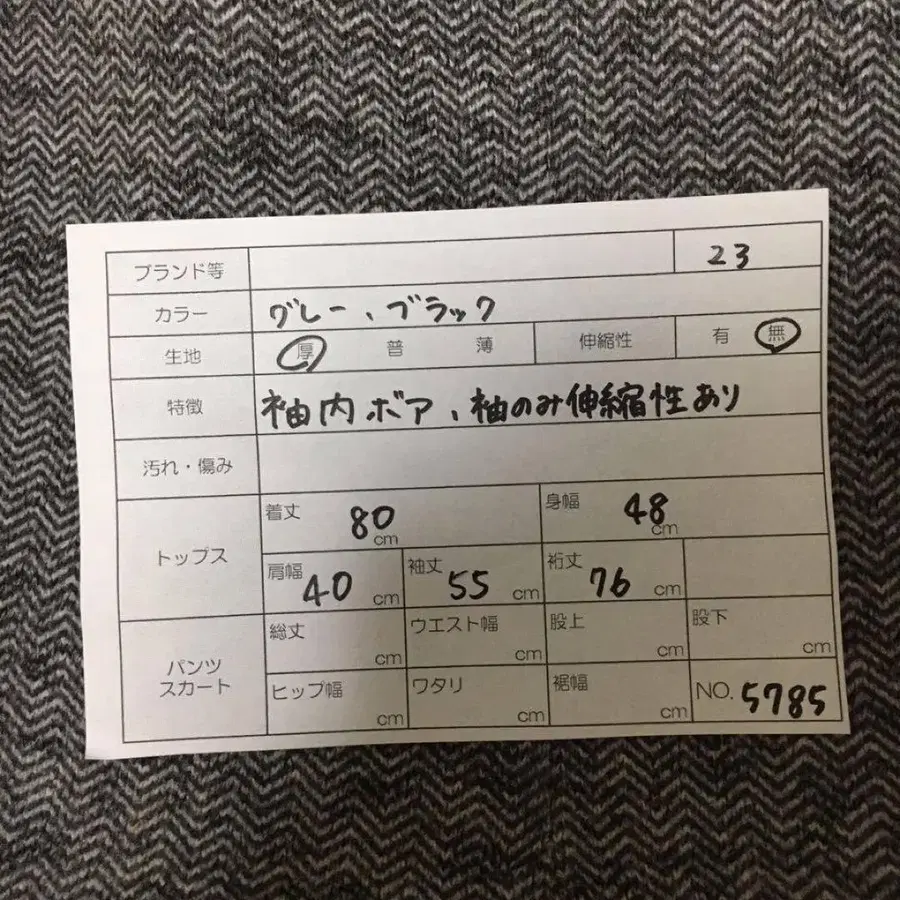 ブランド等 23
カラー グレー、ブラック
生地 厚 普 薄 伸縮性 有 無
特徴 袖内ボア、袖のみ伸縮性あり
汚れ・傷み
トップス
着丈 80 cm 身幅 48 cm
肩幅 40 cm 袖丈 55 cm 裄丈 76 cm
パンツ
スカート
総丈 cm ウエスト幅 cm 股上 cm 股下 cm
ヒップ幅 cm ワタリ cm 裾幅 cm NO. 5785